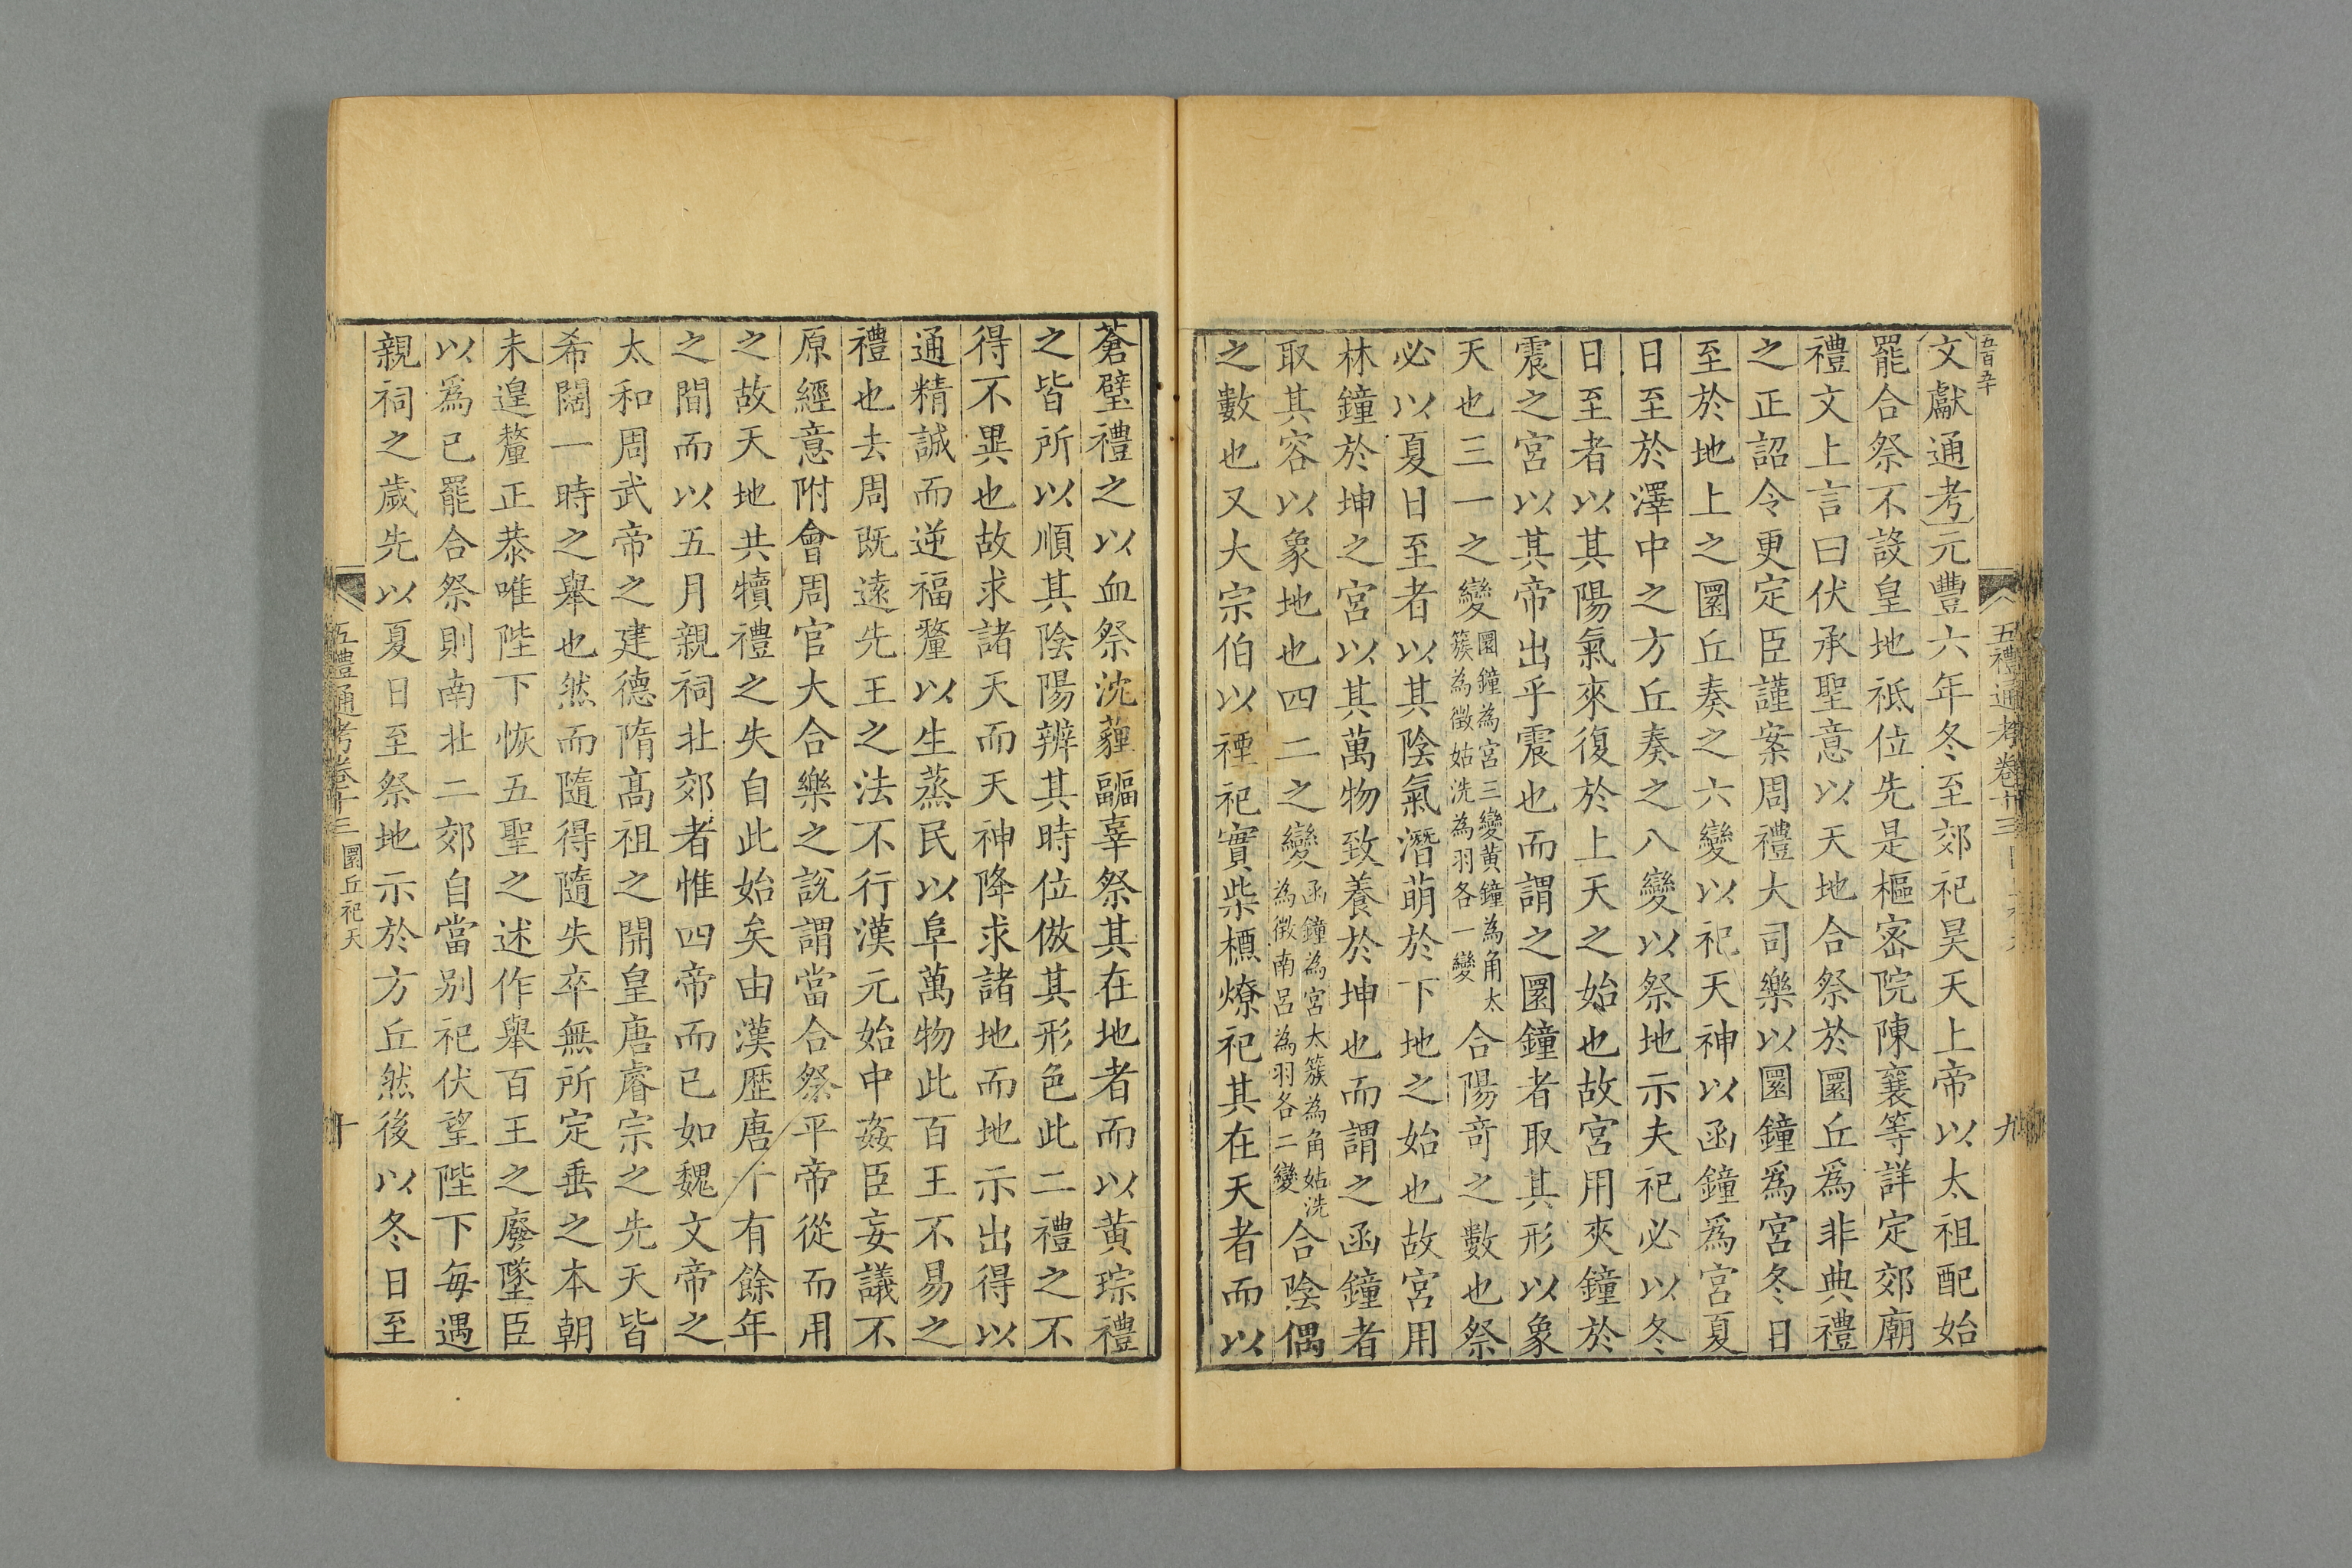 五百辛
文獻通考元豐六年冬至郊祀昊天上帝以太祖配始
罷合祭不設皇地祇位先是樞密院陳襄等詳定郊廟
禮文上言曰伏承聖意以天地合祭於圜丘爲非典禮
之正詔令更定臣謹案周禮大司樂以圜鐘爲宮冬日
至於地上之圜丘奏之六變以祀天神以函鐘爲宮夏
日至於澤中之方丘奏之八變以祭地示夫祀必以冬
日至者以其陽氣來復於上天之始也故宮用夾鐘於
震之宮以其帝出乎震也而謂之圜鐘者取其形以象
天也三一之變圜鐘為宮三變黃鐘為角太簇為徵姑洗為羽各一變合陽竒之數也祭
必以夏日至者以其陰氣潛萌於下地之始也故宮用
林鐘於坤之宮以其萬物致養於坤也而謂之函鐘者
取其容以象地也四二之變函鐘為宮太簇為角姑洗為徵南呂為羽各二變合陰偶
之數也又大宗伯以禋祀實柴槱燎祀其在天者而以
五禮通考卷十三
九
蒼璧禮之以血祭沈薶疈辜祭其在地者而以黄琮禮
之皆所以順其陰陽辨其時位倣其形色此二禮之不
得不異也故求諸天而天神降求諸地而地示出得以
通精誠而逆福釐以生蒸民以阜萬物此百王不易之
禮也去周既遠先王之法不行漢元始中姦臣妄議不
原經意附會周官大合樂之說謂當合祭平帝從而用
之故天地共犢禮之失自此始矣由漢歷唐十有餘年
之間而以五月親祠北郊者惟四帝而已如魏文帝之
太和周武帝之建德隋髙祖之開皇唐睿宗之先天皆
希闊一時之舉也然而隨得隨失卒無所定垂之本朝
未遑釐正恭唯陛下恢五聖之述作舉百王之廢墜臣
以爲已罷合祭則南北二郊自當别祀伏望陛下每遇
親祠之歲先以夏日至祭地示於方丘然後以冬日至
五禮通考卷十三 圜丘祀天
十